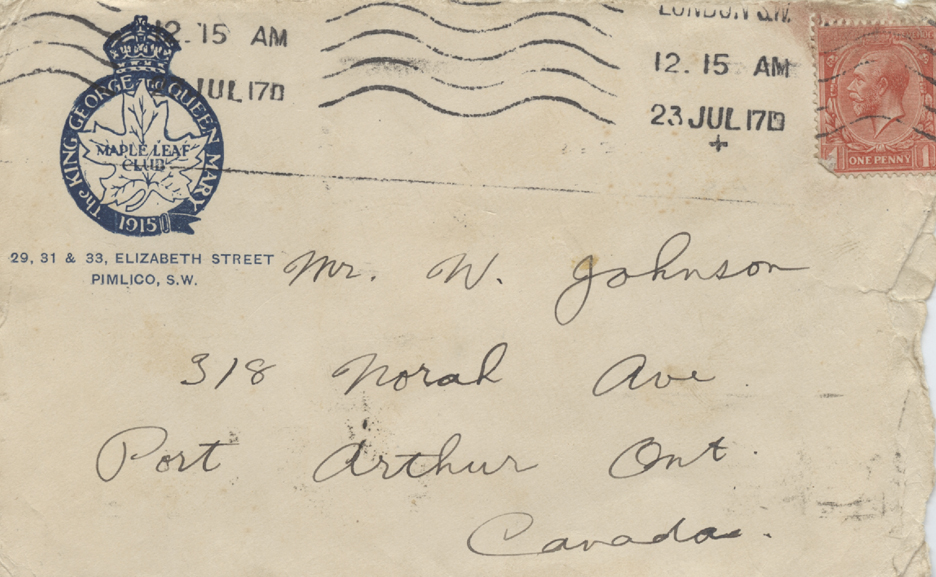 LONDON S.W.
12.15 AM
JUL 17
12.15 AM
23 JUL 17
The KING GEORGE & QUEEN MARY
MAPLE LEAF
CLUB
1915
ONE PENNY
1 1
29, 31 & 33, ELIZABETH STREET
PIMLICO, S.W.
Mr. W. Johnson
318 Norah Ave.
Port Arthur Ont.
Canada.